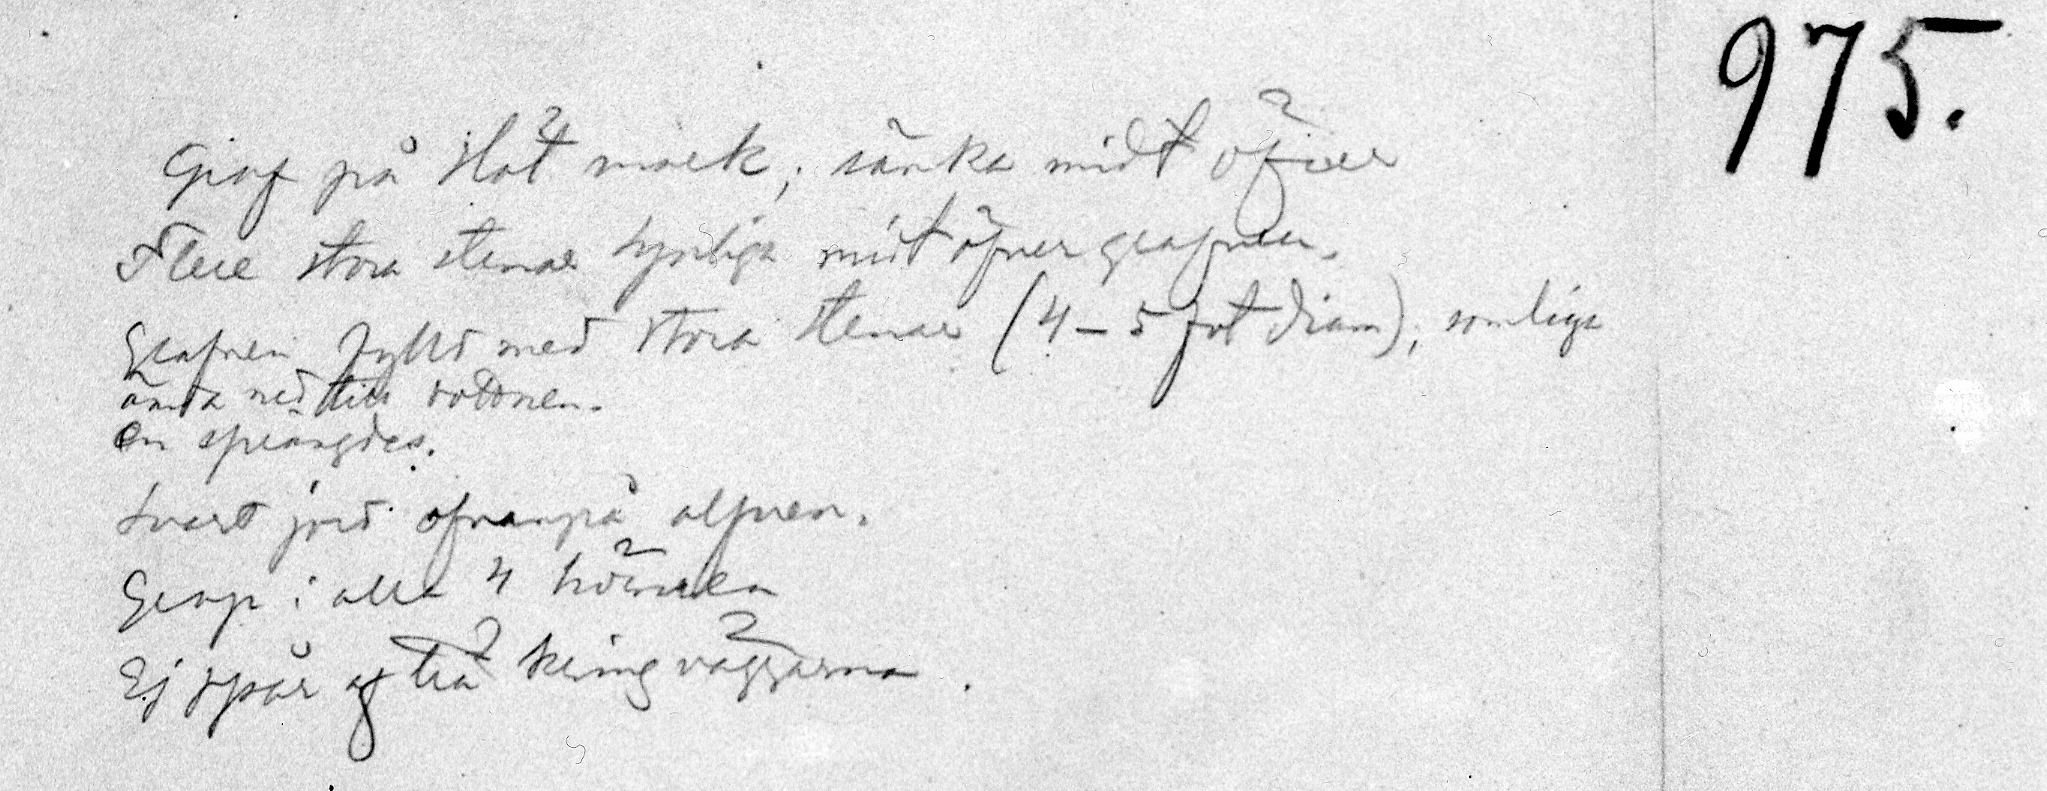 975.
Graf på slät mark; sänka midt öfver
Flere stora stenar synliga midt öfver grafven.
Grafven fylld med stora stenar (4-5 fot diam), somliga
ända ned till bottnen.
en sprängdes.
Svart jord ofvanpå alfven.
Grop i alla 4 hörnen
Ej spår af trä kring väggarna.